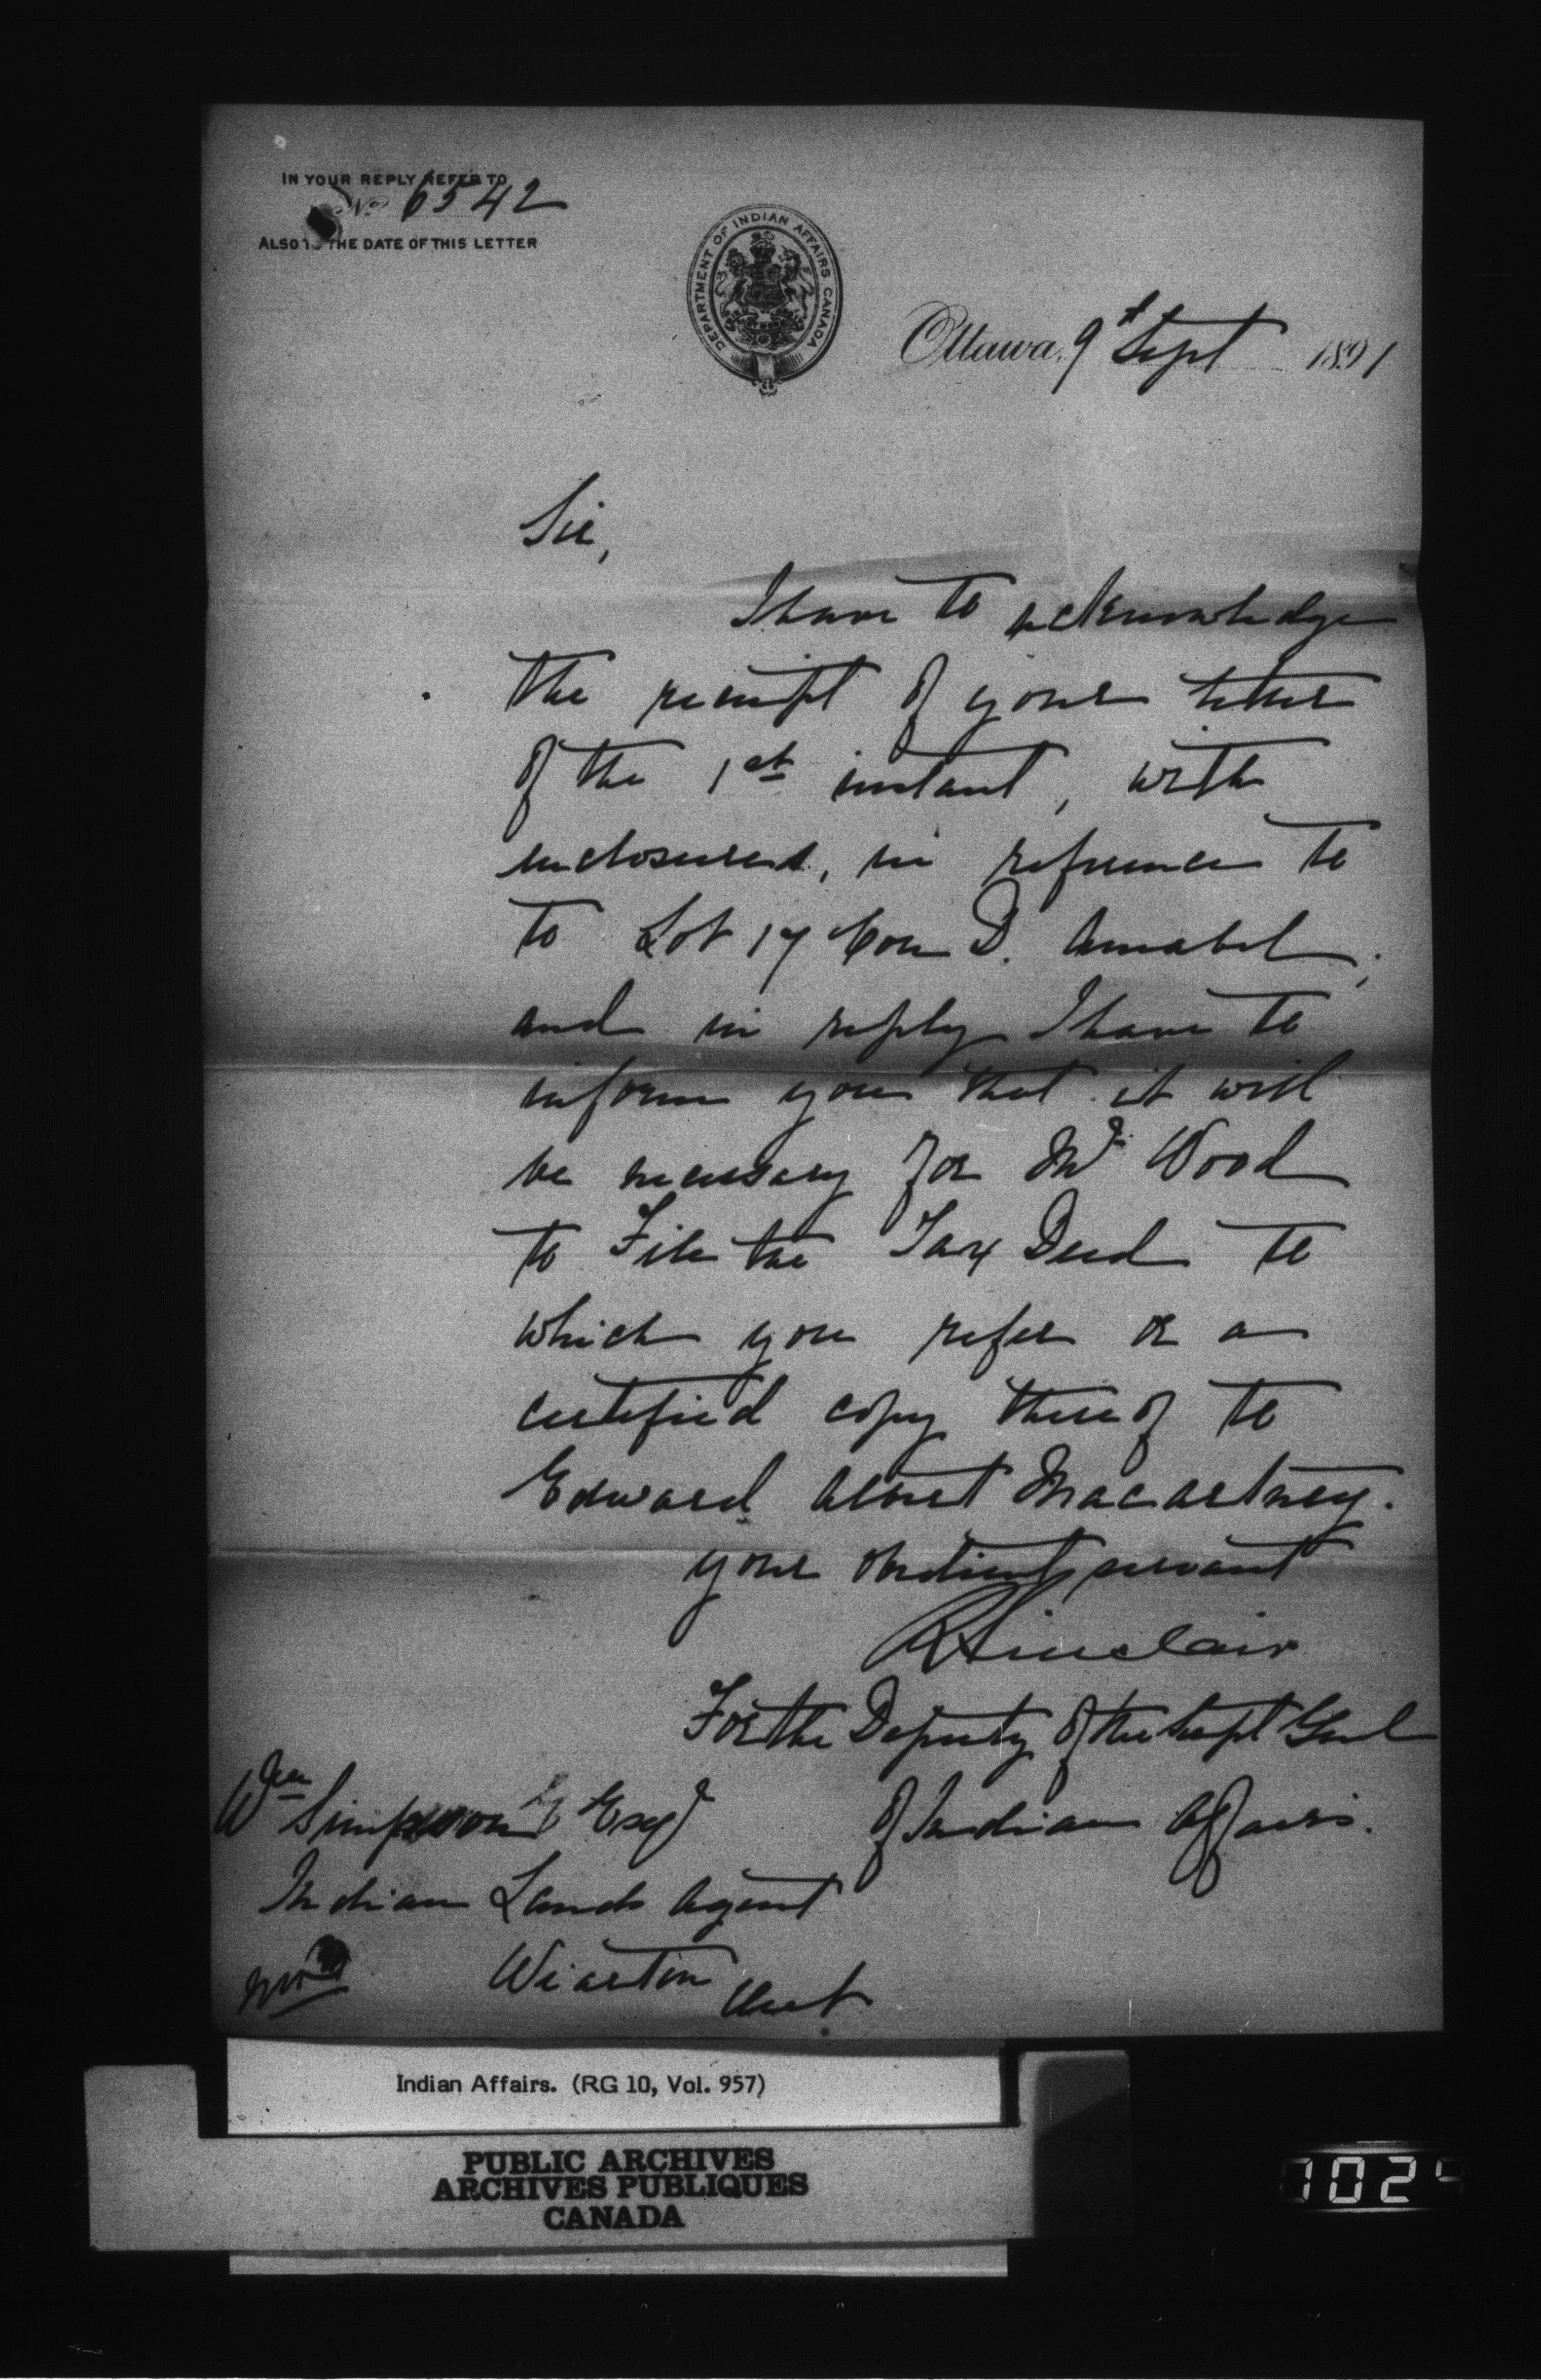 IN YOUR REPLY REFER TO
No 6542
ALSO TO THE DATE OF THIS LETTER
DEPARTMENT OF INDIAN AFFAIRS CANADA
Ottawa, 9th Sept 1891
Sir,
I have to acknowledge
the receipt of your letter
of the 1st instant, with
enclosures, in reference to
to Lot 17 Con D. Amabel;
and in reply I have to
inform you that it will
be necessary for Mr Wood
to File the Tax Deed to
which you refer or a
certified copy thereof to
Edward Macartney.
your obedient servant
R Sinclair
For the Deputy of the Supt Genl
of Indian Affairs.
Wm Simpson Esq
Indian Lands Agent
Wiarton
Ont
Indian Affairs. (RG 10, Vol. 957)
PUBLIC ARCHIVES
ARCHIVES PUBLIQUES
CANADA